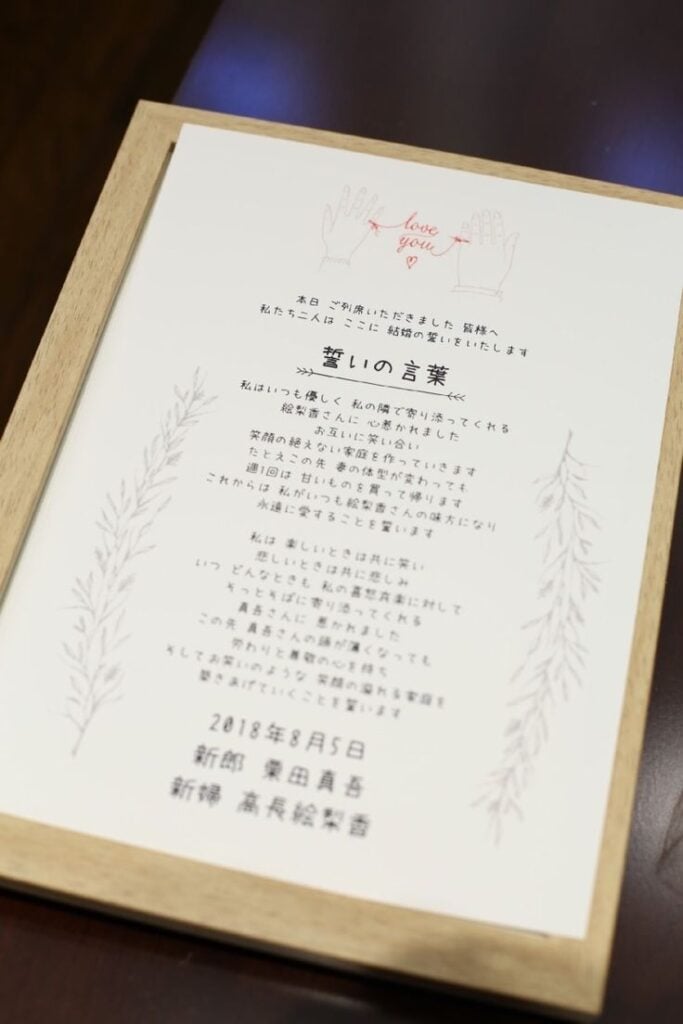 love
you
本日 ご列席いただきました 皆様へ
私たち二人は ここに 結婚の誓いをいたします
誓いの言葉
私はいつも優しく 私の隣で寄り添ってくれる
絵梨香さんに 心惹かれました
お互いに笑い合い
笑顔の絶えない家庭を作っていきます
たとえこの先 妻の体型が変わっても
週1回は 甘いものを買って帰ります
これからは 私がいつも絵梨香さんの味方になり
永遠に愛することを誓います
私は 楽しいときは共に笑い
悲しいときは共に悲しみ
いつ どんなときも 私の喜怒哀楽に対して
そっとそばに寄り添ってくれる
真吾さんに 惹かれました
この先 真吾さんの頭が薄くなっても
労わりと尊敬の心を持ち
そしてお笑いのような 笑顔の溢れる家庭を
築きあげていくことを誓います
2018年8月5日
新郎 栗田真吾
新婦 高長絵梨香